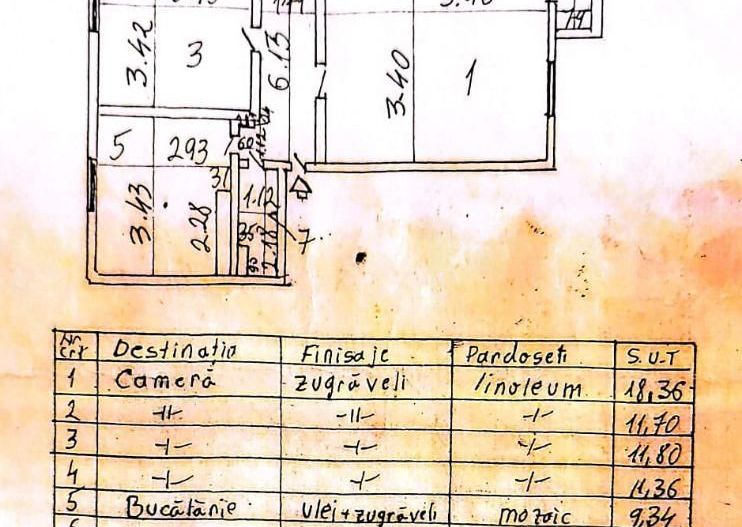 3.42
3
6.13
3.40
1
5
293
3.43
2.28
37
1.12
7
Nr. crt Destinația Finisaje Pardoseli S.U.T
1 Cameră zugrăveli linoleum 18,36
2 -||- -||- -/- 11,70
3 -/- -/- -/- 11,80
4 -/- -/- -/- 11,36
5 Bucătărie Ulei+zugrăveli mozaic 9,34